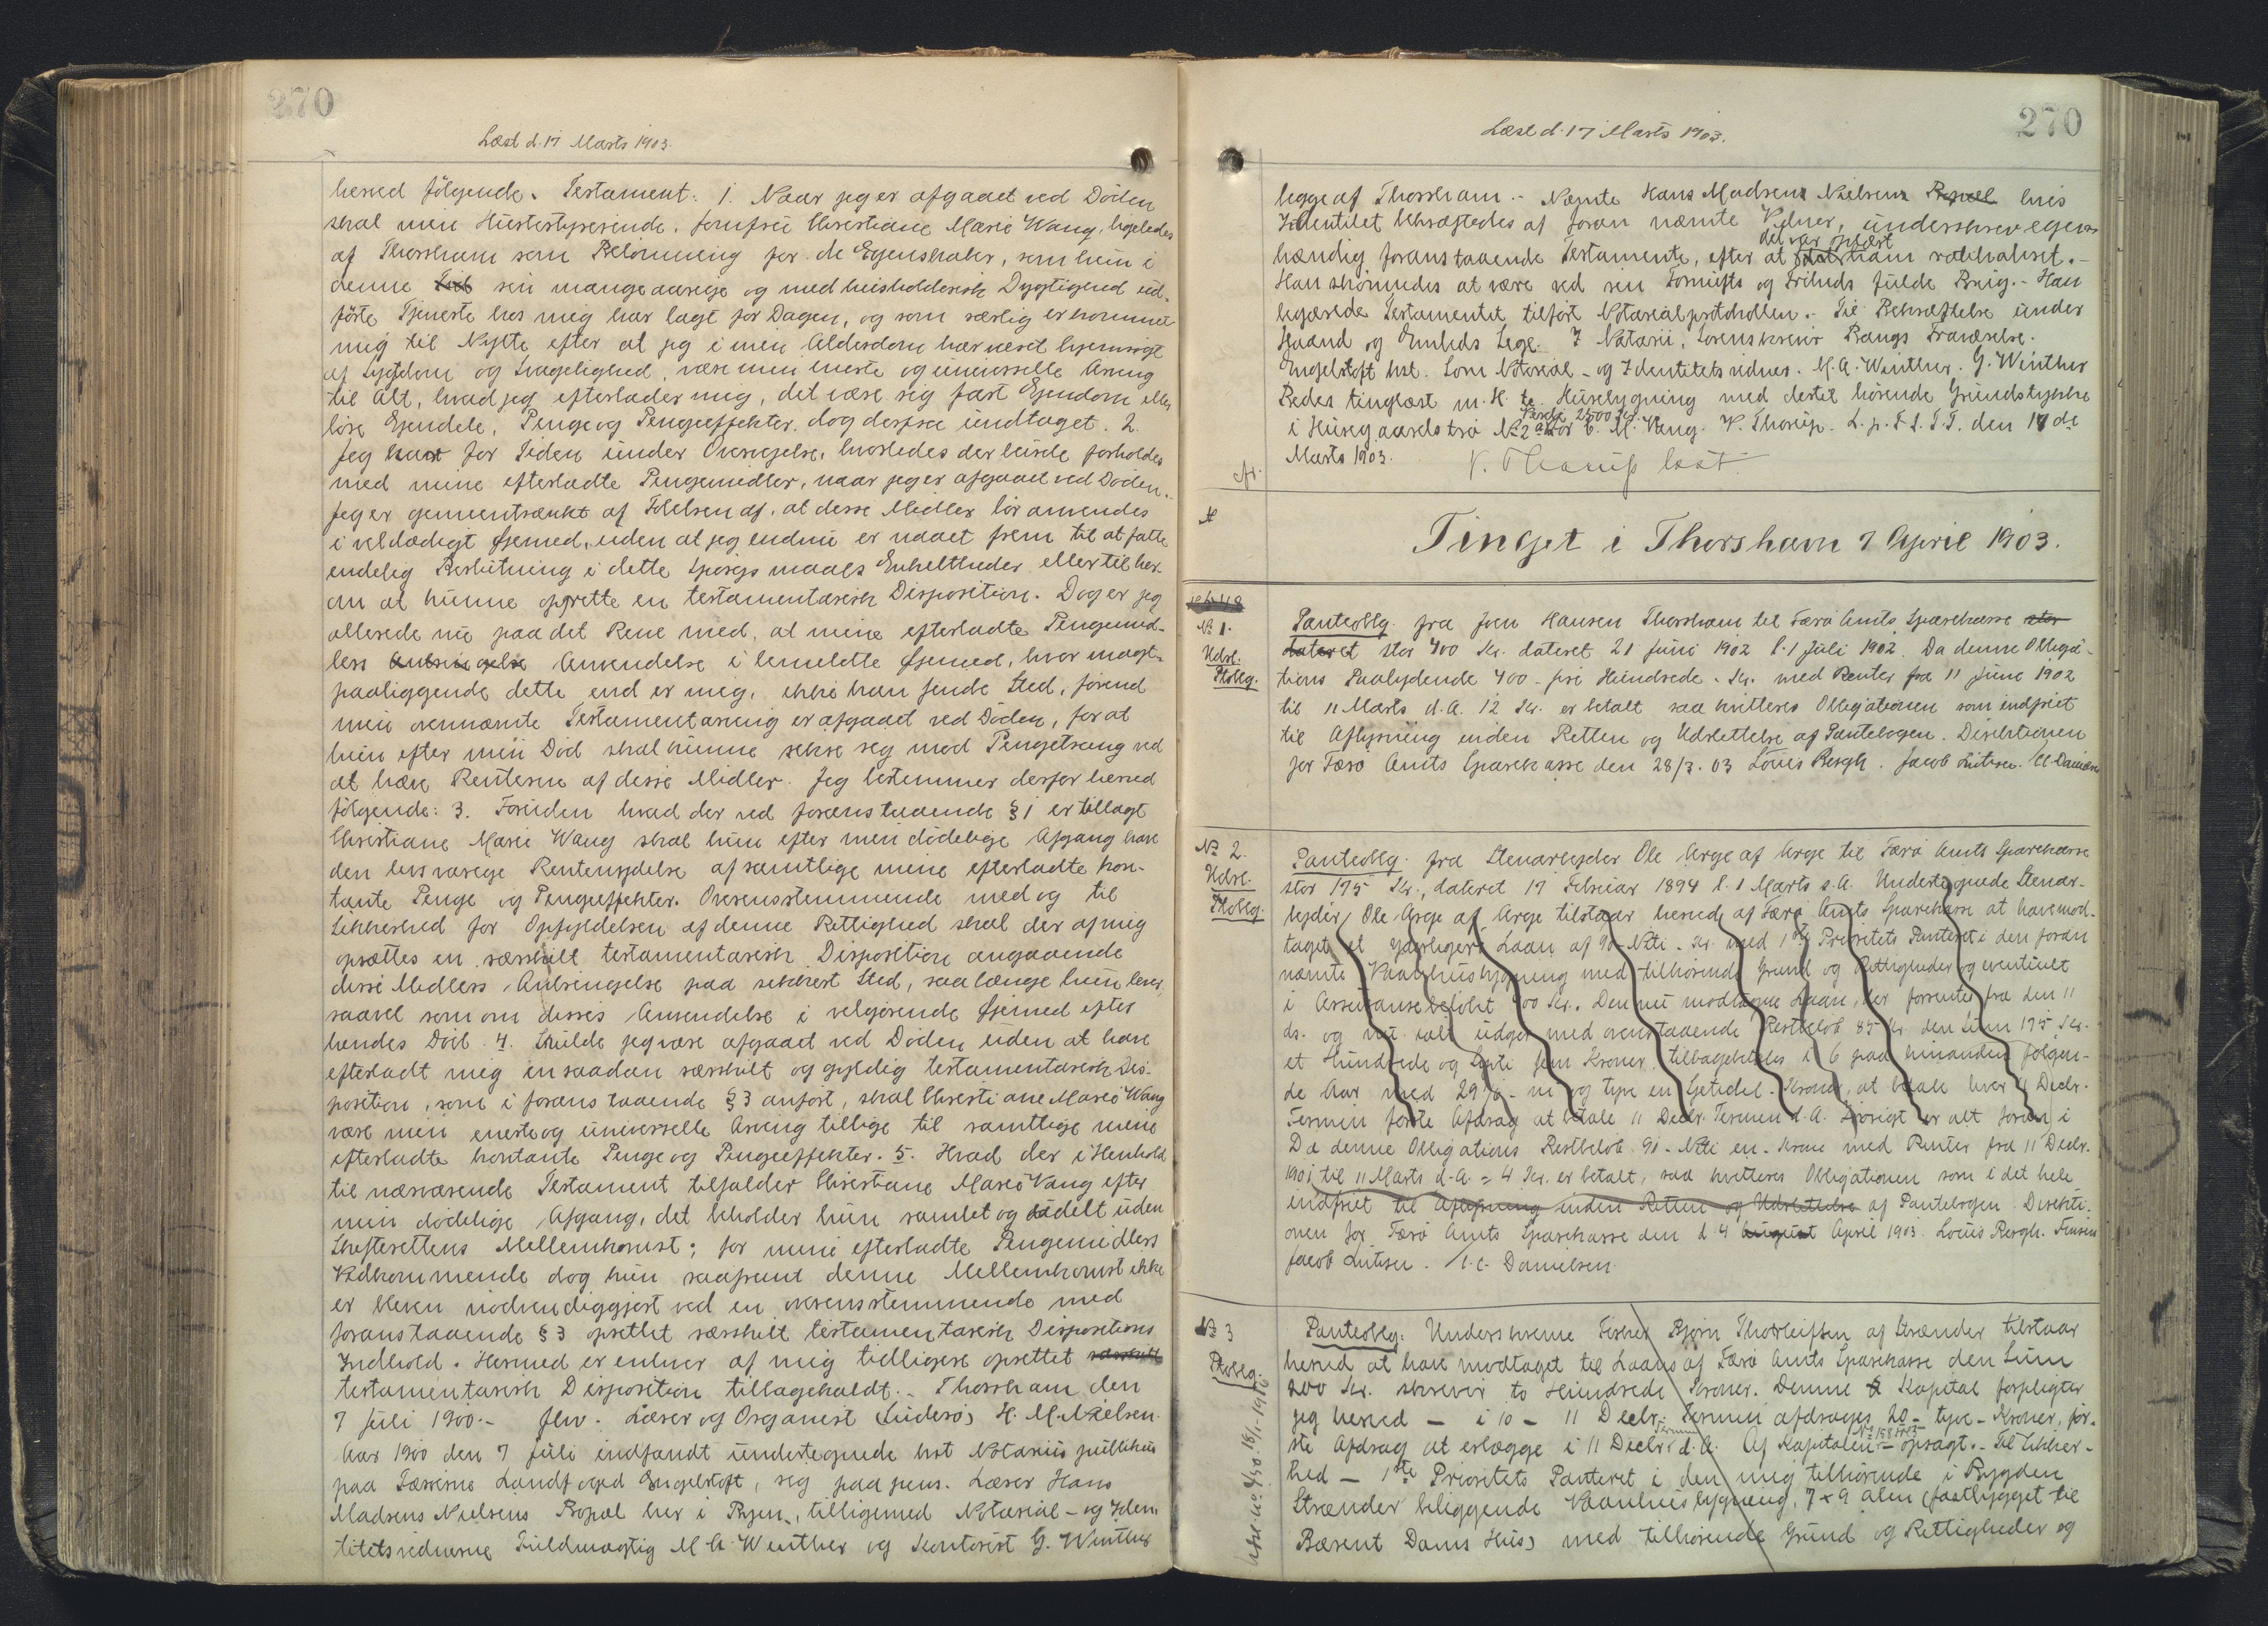 270
Læst d. 17 Marts 1903.
herved følgende. Testament: 1. Naar jeg er afgaaet ved Døden
skal min Husbestyrerinde, Jomfru Christiane Marie Wang, ligeledes
af Thorshavn som Belønning for de Egenskaber, som hun i
denne sin mangeaarige og med huusholderisk Dygtighed ud-
førte Tjeneste hos mig har lagt for Dagen, og som særlig er kommet
mig til Nytte efter at jeg i min Alderdom har været hjemsøgt
af Sygdom og Svagelighed, være min eneste og universelle Arving
til Alt, hvad jeg efterlader mig, det være sig fast Ejendom eller
løse Ejendele, Penge og Pengeeffekter, dog derfra undtaget. 2.
Jeg har for Tiden under Overvejelse, hvorledes der burde forholdes
med mine efterladte Pengemidler, naar jeg er afgaaet ved Døden.
Jeg er gjennemtrænkt af Følelsen af, at disse Midler bør anvendes
i veldædigt Øjemed, uden at jeg endnu er naaet frem til at fatte
endelig Beslutning i dette Spørgsmaals Enkeltheder eller til her-
om at kunne oprette en testamentarisk Disposition. Dog er jeg
allerede nu paa det Rene med, at mine efterladte Pengemid-
lers Anvendelse i bemeldte Øjemed, hvor magt-
paaliggende dette end er mig, ikke kan finde Sted, førend
min ovennævnte Testamentarving er afgaaet ved Døden, for at
hun efter min Død skal kunne sikre sig mod Pengetrang ved
at hæve Renterne af disse Midler. Jeg bestemmer derfor herved
følgende: 3. Foruden hvad der ved foranstaaende § 1 er tillagt
Christiane Marie Wang skal hun efter min dødelige Afgang have
den livsvarige Rentenydelse af samtlige mine efterladte kon-
tante Penge og Pengeeffekter. Overensstemmende med og til
Sikkerhed for Opfyldelsen af denne Rettighed skal der af mig
opsættes en særskilt testamentarisk Disposition angaaende
disse Midlers Anbringelse paa sikkert Sted, saa længe hun lever,
saavel som om disses Anvendelse i velgjørende Øjemed efter
hendes Død. 4. Skulde jeg være afgaaet ved Døden uden at have
efterladt mig en saadan særskilt og gyldig testamentarisk Dis-
position, som i foranstaaende § 3 anført, skal Christiane Marie Wang
være min eneste og universelle Arving tillige til samtlige mine
efterladte kontante Penge og Pengeeffekter. 5. Hvad der i Henhold
til nærværende Testament tilfalder Christiane Marie Wang efter
min dødelige Afgang, det beholder hun samlet og udelt uden
Skifterettens Mellemkomst; for mine efterladte Pengemidlers
Vedkommende dog kun saafremt denne Mellemkomst ikke
er bleven nødvendiggjort ved en overensstemmende med
foranstaaende § 3 oprettet særskilt testamentarisk Dispositions
Indhold. Hermed er enhver af mig tidligere oprettet særskilt
testamentarisk Disposition tilbagekaldt. - Thorshavn den
7 Juli 1900. - fhv. Læser og Organist (Suderø) H. M. Nielsen.
Aar 1900 den 7 Juli indfandt undertegnede kst Notarius publikus
paa Færøerne Landfoged Engelstoft, sig paa pens. Læser Hans
Madsens Nielsens Bopæl her i Byen, tilligemed Notarial- og Iden-
titetsvidnerne Fuldmægtig M. A. Winther og Kontorist G. Winther
270
Læst d. 17 Marts 1903.
begge af Thorshavn. - Nævnte Hans Madsens Nielsens Bopæl hvis
Identitet bekræftedes af foran nævnte Vidner, underskrev egen-
det var oplæst
hændig foranstaaende Testamente, efter at ham vedtaget. -
Han skjønnedes at være ved sin Fornufts og Frivilds fulde Brug. - Han
begærede Testamentet tilført Notarialprotokollen. - Til Bekræftelse under
Haand og Embeds Segl. I Notarii, Sorenskriver Bangs Fraværelse.
Engelstoft kst. Som Notarial- og Identitetsvidner. M. A. Winther. G. Winther
Bedes tinglæst m. H. t. Husebygning med dertil hørende Grundstykke
Værdi 2500 Kr.
i Husegaardstrø № 2 a for C. M. Vang. V. Thorup. L. p. F. J. T. T. den 17 de
Marts 1903.
V. Thorup kst
Tinget i Thorshavn 7 April 1903.
№ 1.
Udsl.
Ptoblg.
Panteoblg. fra Joen Hansen Thorshavn til Færø Amts Sparekasse stor
dateret stor 400 Kr. dateret 21 Juni 1902 l. 1 Juli 1902. Da denne Obliga-
tions Paalydende 400 - fire Hundrede - Kr. med Renter fra 11 Juni 1902
til 11 Marts d. A. 12 Kr. er betalt saa kvitteres Obligationen som indfriet
til Aflysning inden Retten og Udslettelse af Pantebogen. Direktionen
for Færø Amts Sparekasse den 28/3. 03 Louis Bergh. Jacob Lutzen.
№ 2.
Udsl.
Ptoblg.
Panteoblg. fra Stenarbejder Ole Arge af Arge til Færø Amts Sparekasse
stor 175 Kr., dateret 17 Februar 1894 l. 1 Marts s. A. Undertegnede Stenar-
bejder Ole Arge af Arge tilstaar herved af Færø Amts Sparekasse at have mod-
taget et yderligere Laan af 90 - Niti - Kr. med 1ste Prioritets Panteret i den foran
nævnte Vaaningsbygning med tilhørende Grund og Rettigheder og eventuelt
i Assurancebeløbet 400 Kr. Den nu modtagne Laan, der forrentes fra den 11
ds. og udgør med ovenstaaende Restbeløb 85 Kr. den Sum 175 Kr.
et Hundrede og Sytti fem Kroner, tilbagebetales i 6 paa hinanden følgen-
de Aar med 29 1/6 - ni og tyve en Sjetedel - Kroner, at betale hver 11 Decbr.
Termin første Afdrag at betale 11 Decbr. Termin d. A. Iøvrigt er alt foran i
Da denne Obligations Restbeløb 91 - Niti en - Krone med Renter fra 11 Decbr.
1901 til 11 Marts d. A. = 4 Kr. er betalt, saa kvitteres Obligationen som i det hele
indfriet til Aflysning inden Retten og Udslettelse af Pantebogen. Direkti-
onen for Færø Amts Sparekasse den d. 4 August April 1903. Louis Bergh.
Jacob Lutzen. C. C. Danielsen.
№ 3
Ptoblg.
Panteoblg. Underskrevne Fisker Bjørn Thorleifsen af Strænder tilstaar
herved at have modtaget til Laans af Færø Amts Sparekasse den Sum
200 Kr. skriver to Hundrede Kroner. Denne Kapital forpligter
jeg herved - i 10 - 11 Decbr. Termin afdrages 20 - tyve - Kroner, før-
Termin
ste Afdrag at erlægge i 11 Decbr. d. A. Af Kapitalen - opsagt. - Til Sikker-
hed - 1ste Prioritets Panteret i den mig tilhørende i Bygden
Strænder beliggende Vaanhusbygning, 7 x 9 Alen (fastbygget til
Dams Hus) med tilhørende Grund og Rettigheder og